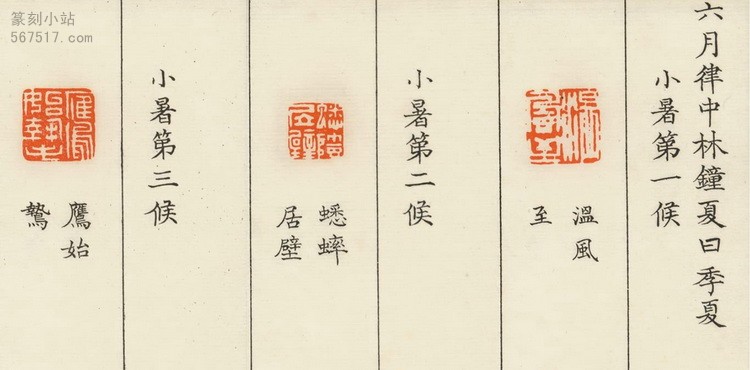 六月律中林鐘夏曰季夏
小暑第一候
溫風
至
小暑第二候
蟋蟀
居壁
小暑第三候
鷹始
鷙
篆刻小站
567517.com